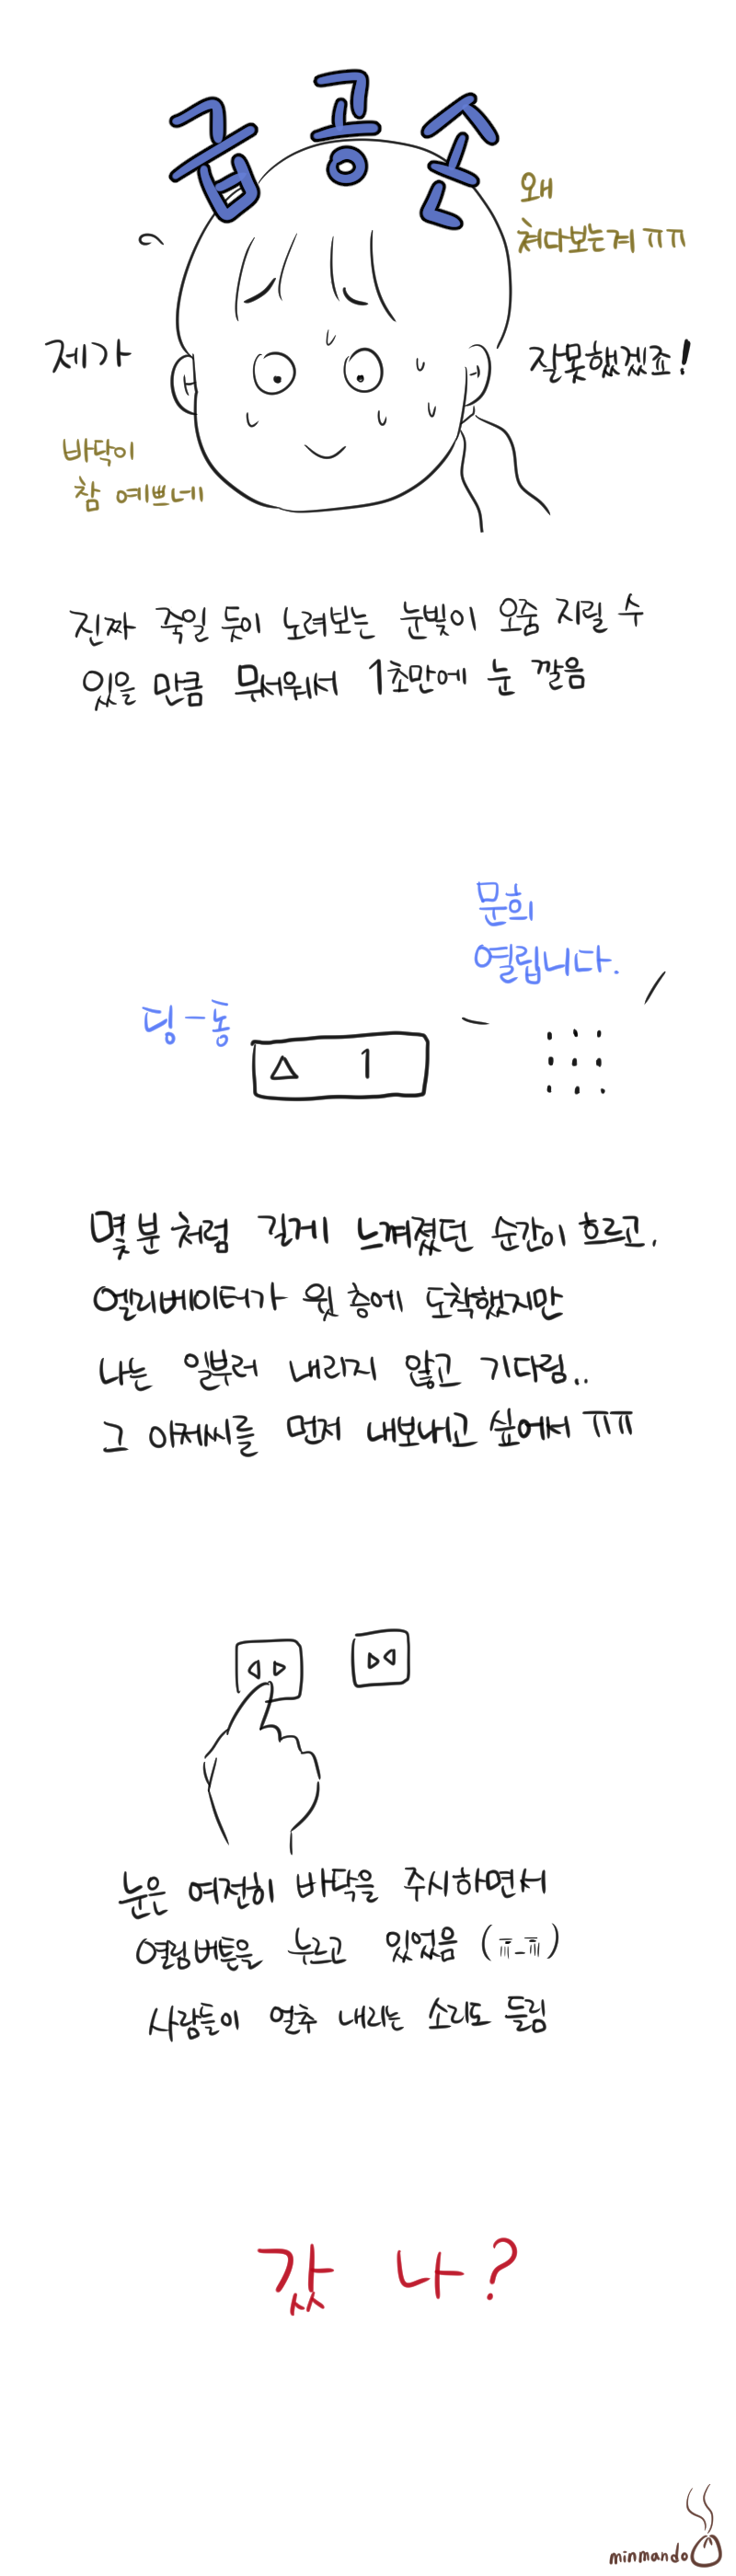 급공손
왜
쳐다보는겨 ㅠㅠ
제가
잘못했겠죠!
바닥이
참 예쁘네
진짜 죽일 듯이 노려보는 눈빛이 오줌 지릴 수
있을 만큼 무서워서 1초만에 눈 깔음
문희
열립니다.
딩-동
1
몇분처럼 길게 느껴졌던 순간이 흐르고,
엘리베이터가 윗 층에 도착했지만
나는 일부러 내리지 않고 기다림..
그 아저씨를 먼저 내보내고 싶어서 ㅠㅠ
눈은 여전히 바닥을 주시하면서
열림버튼을 누르고 있었음 (ㅠ_ㅠ)
사람들이 얼추 내리는 소리도 들림
갔 나?
minmando